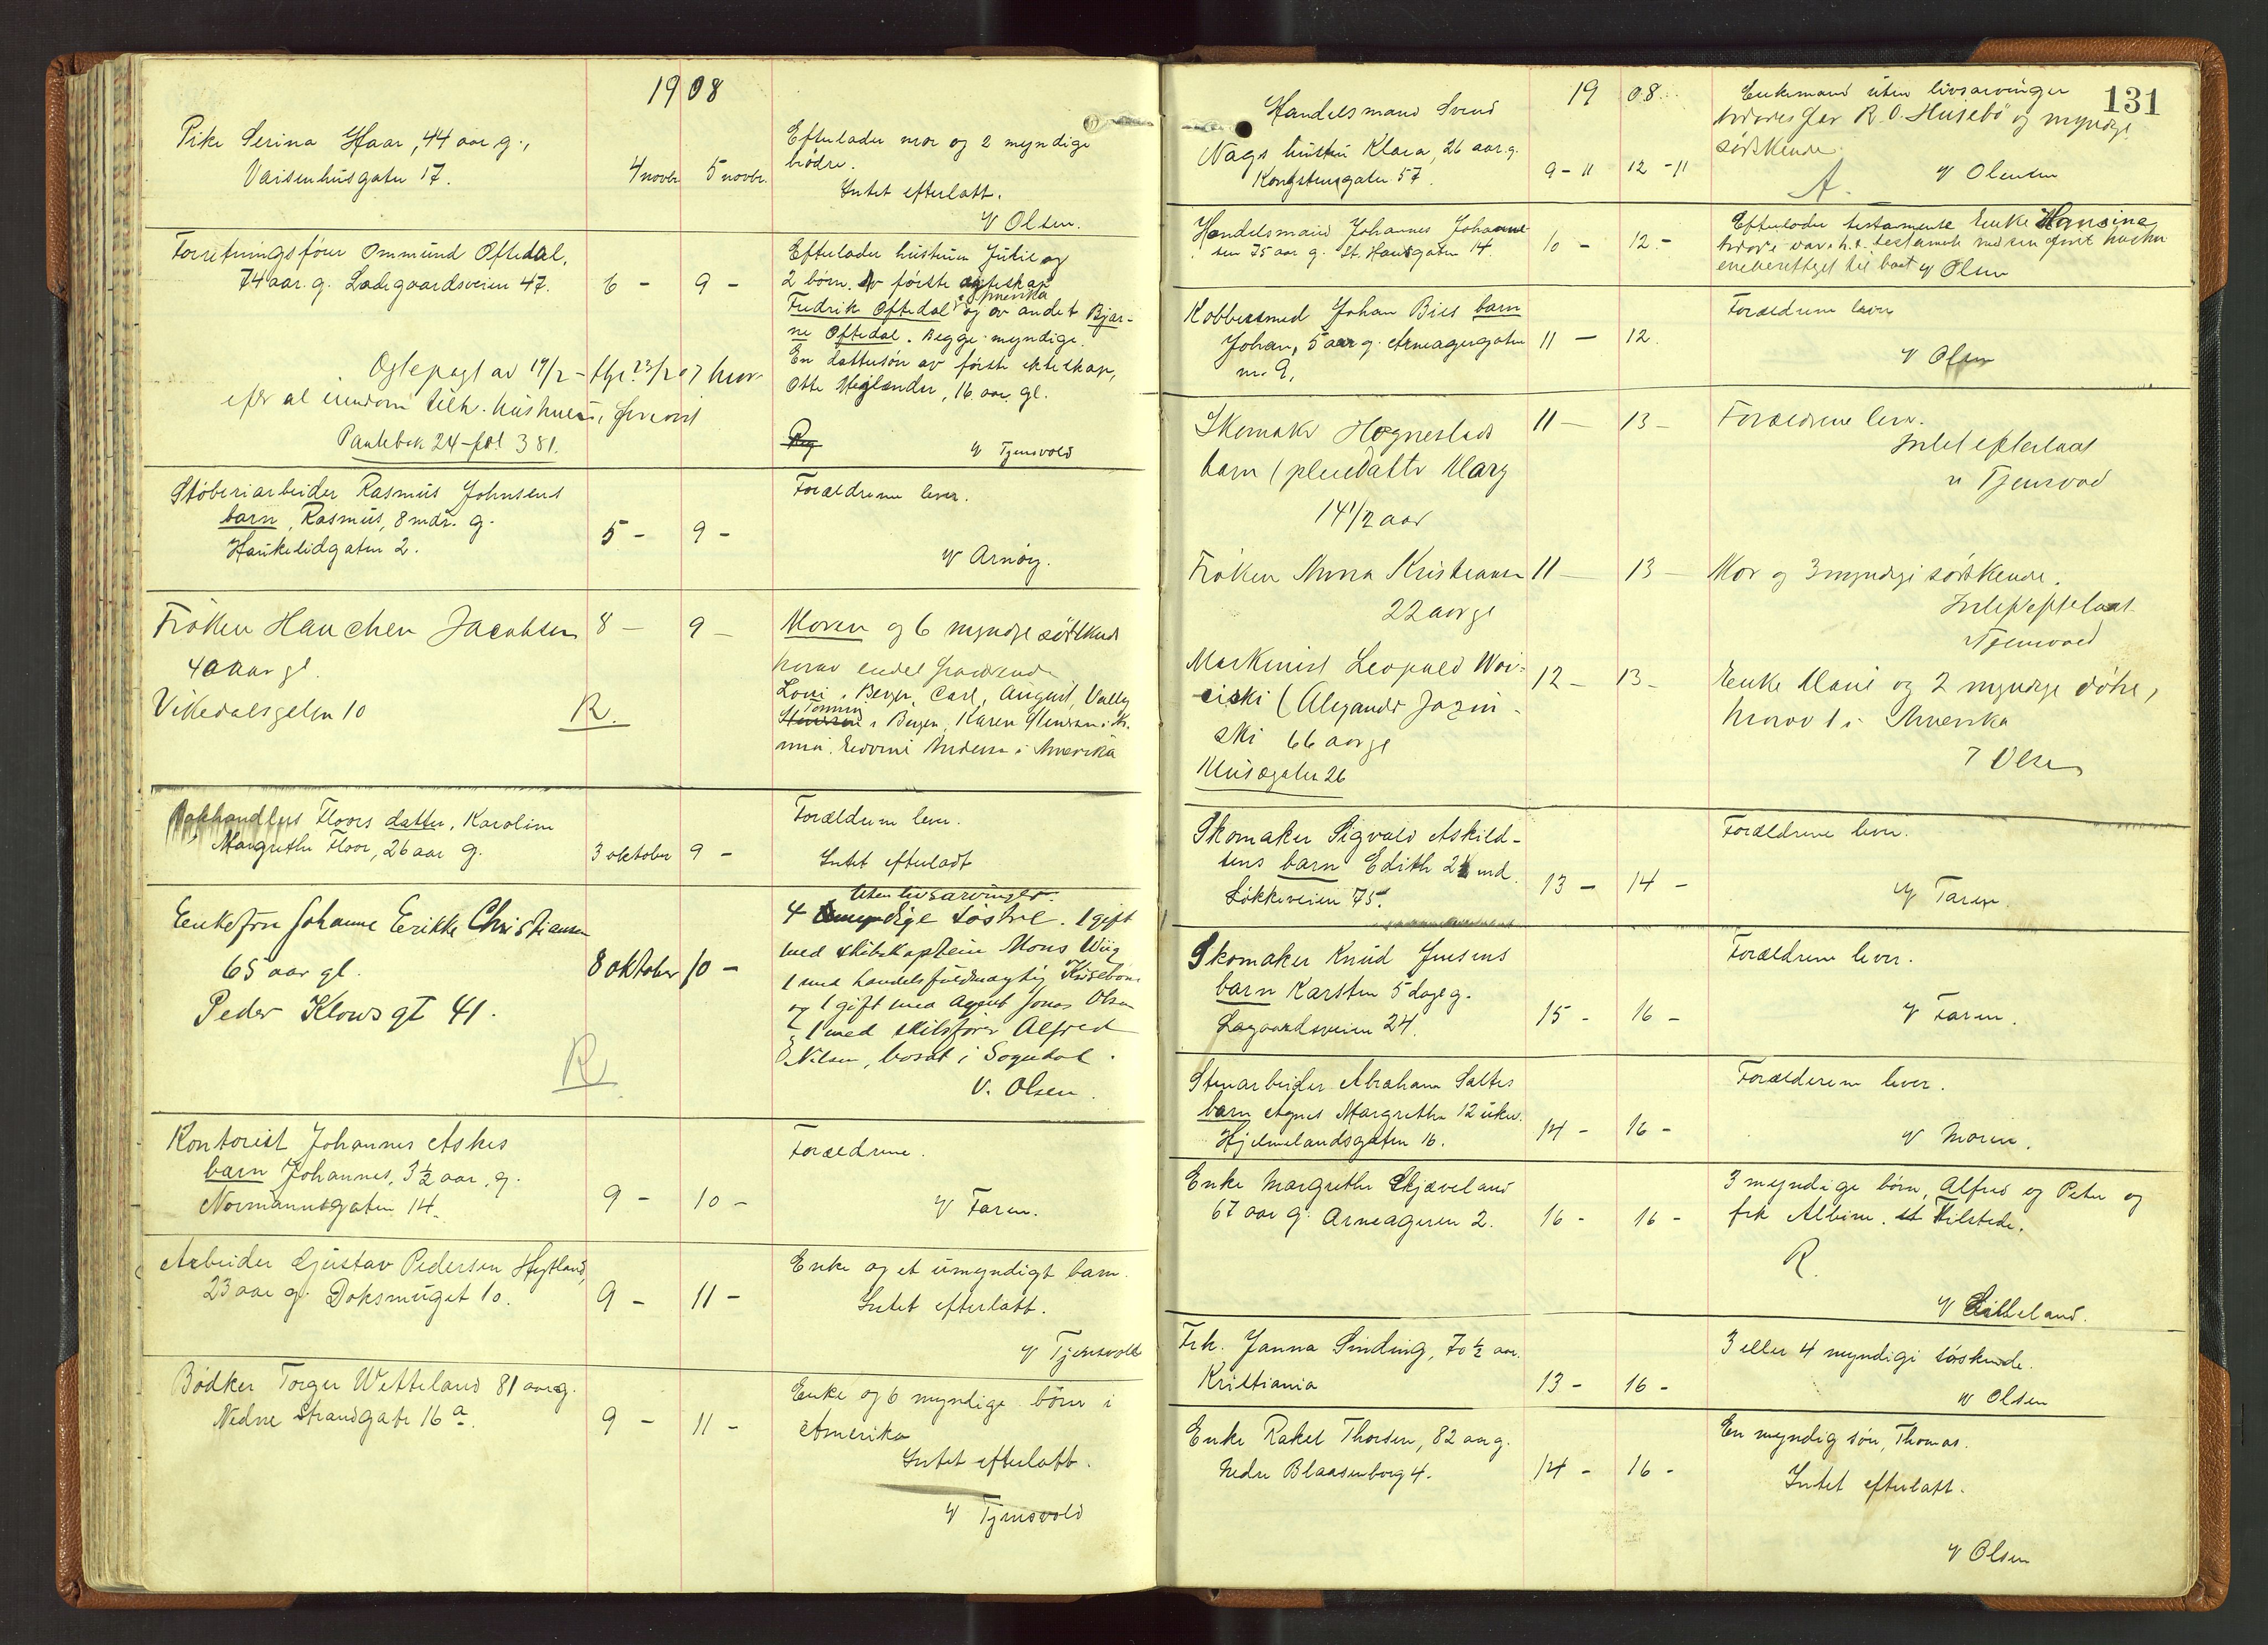 1908
Pike Serina Haar, 44 aar g.,
Vaisenhusgaten 17.
4 novbr. 5 novbr.
Efterlader mor og 2 myndige
brødre.
Intet efterlatt.
V Olsen.
Forretningsfører Ommund Oftedal,
74 aar. g. Ladegaardsveien 47.
6 - 9 -
Efterlader hustruen Julie og
2 børn. Av første egteskap
Fredrik Oftedal i Amerika og av andet Bjar-
ne Oftedal. Begge myndige.
En dattersøn av første ekteskap,
Otto Meglender, 16 aar gl.
Egtepagt av 19/2 - tlgl. 23/2 07
Pantebok 24 - fol 381.
V Tjensvold
Støberiarbeider Rasmus Johnsens
barn, Rasmus, 8 mdr. g.
Haukelidgaten 2.
5 - 9 -
Forældrene lever.
V Arnøy.
Frøken Hanchen Jacobsen
40 aar gl.
Vikedalsgaten 10
8 - 9 -
R.
Moren og 6 myndige søskend
horav endel fraværende
Loui i Bergen, Carl, August, Vally
Tommy i Bergen, Karen
i Amerika
Bokhandler Floors datter, Karoline
Margrethe Floor, 26 aar g.
3 oktober 9 -
Forældrene lever.
Intet efterladt
Enkefru Johanne Erikke Christiansen
65 aar gl.
Peder Klows gt 41.
8 oktober 10 -
R
Uten livsarvinger.
4 myndige søstre. 1 gift
med skibskaptein Mons Wiig
1 med handelsfuldmægtig Husebøe
og 1 gift med Agent Jonas Olsen
1 med skibsfører Alfred
E Nilsen, bosat i Sogndal.
V. Olsen.
Kontorist Johannes Askes
barn Johannes, 3 1/2 aar, g.
Normannsgaten 14.
9 - 10 -
Forældrene.
V Faren.
Arbeider Gustav Pedersen Hytland,
23 aar g. Doksmuget 10.
9 - 11 -
Enke og et umyndigt barn.
Intet efterlatt.
V Tjensvold
Bødker Torger Wetteland 81 aar g.
Nedre Strandgate 16 a.
9 - 11 -
Enke og 6 myndige børn i
Amerika
Intet efterlatt.
V Tjensvold
19 08.
131
Handelsmand Svend
Nags hustru Klara, 26 aar g.
Kongstensgaten 57.
9 - 11 12 - 11
Enkemand uten livsarvinger
R. O. Husebø og myndige
søskende.
A.
V Olsen
Handelsmand Johannes Johanne-
sen 75 aar g. St. Hansgaten 14.
10 - 12 -
Efterlader testamente Enke Hansine
V Olsen
Kobbersmed Johan Bies barn
Johan, 5 aar g. Armeagergaten
nr. 9,
11 - 12.
Forældrene lever
V Olsen
Skomaker Hognestads
barn (pleiedatter Mary
14 1/2 aar
11 - 13 -
Forældrene lever.
Intet efterlaat
V Tjensvold
Frøken Anna Kristiansen
22 aar gl
11 - 13 -
Mor og 3 myndige søskende.
Intet efterlaat
V Tjensvold
Maskinist Leopold Woi-
ciski (Alexander Jozin-
ski 66 aar gl
Musegaten 26
12 - 13 -
Enke Marie og 2 myndige døtre,
horav 1 i Amerika
V Olsen
Skomaker Sigvald Askild-
sens barn Edith 2 md.
Løkkeveien 75.
13 - 14 -
Forældrene lever.
V Faren.
Skomaker Knud Jensens
barn Karsten 5 dage g.
Lagaardsveien 24.
15 - 16 -
Forældrene lever.
V Faren.
Stenarbeider Abraham Saltes
barn Agnes Margrethe 12 uker.
Hjelmelandsgaten 16.
14 - 16 -
Forælderene lever.
V Moren.
Enke Margrethe Skjæveland
67 aar g. Armeageren 2.
16 - 16 -
3 myndige børn, Alfred og Peter og
frk Albine. Tilstede.
R.
V Lilleland.
Frk. Janna Sinding, 70 1/2 aar.
Kristiania
13 - 16 -
3 eller 4 myndige søskende.
V Olsen
Enke Rakel Thorsen, 82 aar g.
Nedre Blaasenborg 4.
14 - 16 -
En myndig søn, Thomas.
Intet efterlatt.
V Olsen